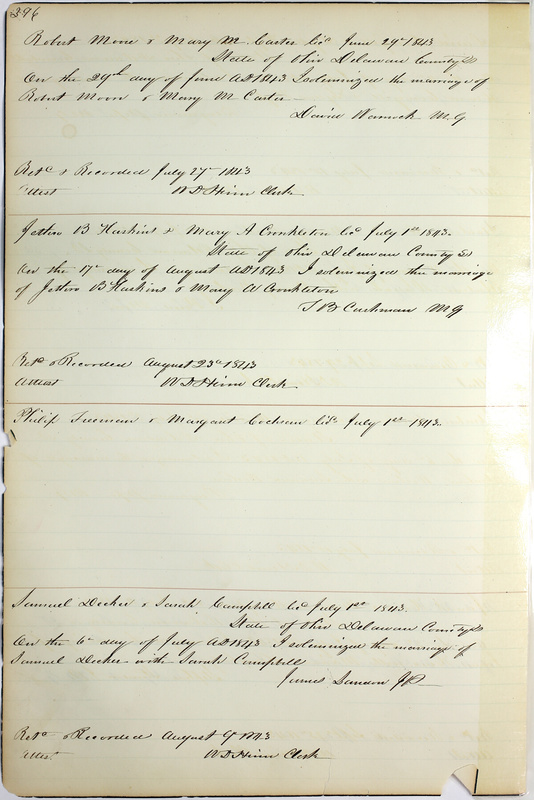 396
Robert Moore & Mary M. Carter Lic June 29th 1843
State of Ohio Delaware County Ss
On the 29th day of June AD 1843 I solemnized the marriage of
Robert Moore & Mary M Carter
David Warnock M.G
Retd & Recorded July 27th 1843
Attest W D Heim Clerk
Jethro B Huskins & Mary A Cronkleton Lic July 1st 1843.
State of Ohio Delaware County Ss
On the 17th day of August AD 1843 I solemnized the marriage
of Jethro B Huskins & Mary A Cronkleton
J B Cushman MG
Retd & Recorded August 23d 1843
Attest W D Heim Clerk
Philip Freeman & Margaret Cochran Lic July 1st 1843.
Samuel Decker & Sarah Campbell Lic July 1st 1843.
State of Ohio Delaware County Ss
On the 6th day of July AD 1843 I solemnized the marriage of
Samuel Decker with Sarah Campbell
James JP
Retd & Recorded August 9th 1843
Attest W D Heim Clerk